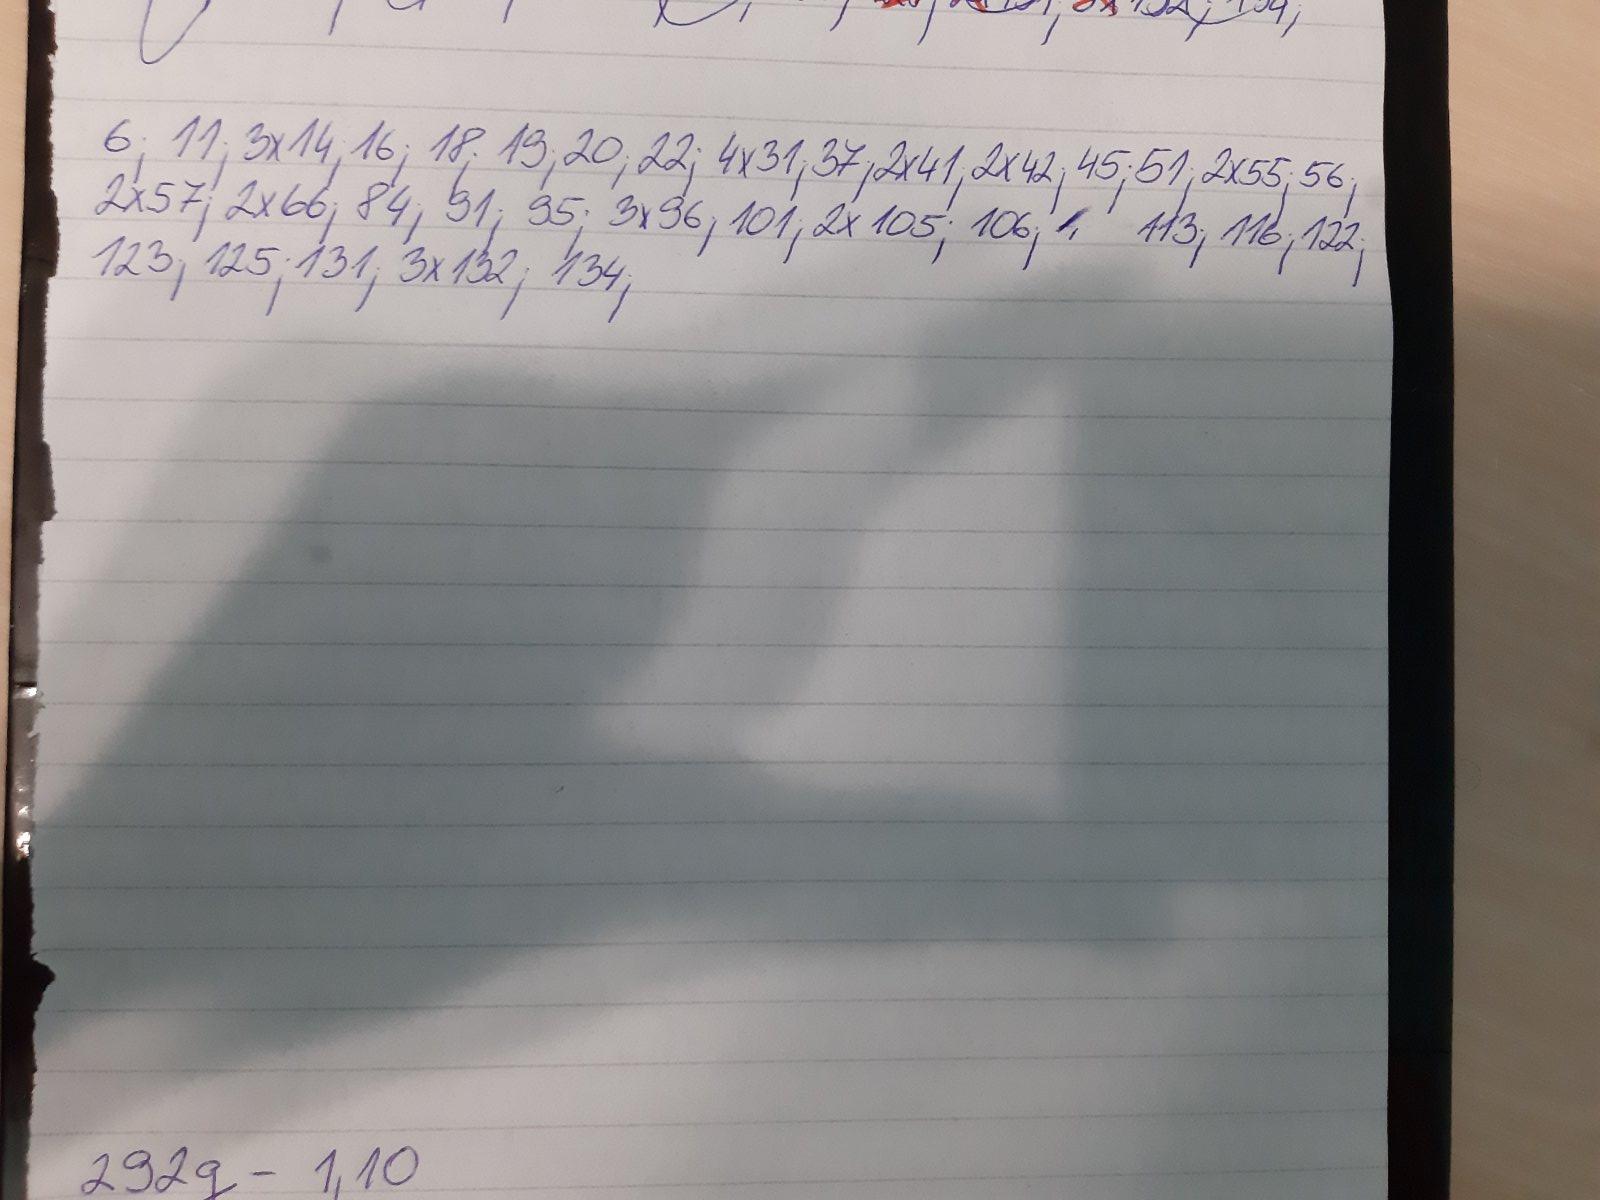 134;
6; 11; 3x14; 16; 18; 19; 20; 22; 4x31; 37; 2x41; 2x42; 45; 51; 2x55; 56;
2x57; 2x66; 84; 91; 95; 3x96; 101; 2x105; 106; 113; 116; 122;
123; 125; 131; 3x132; 134;
292g - 1,10